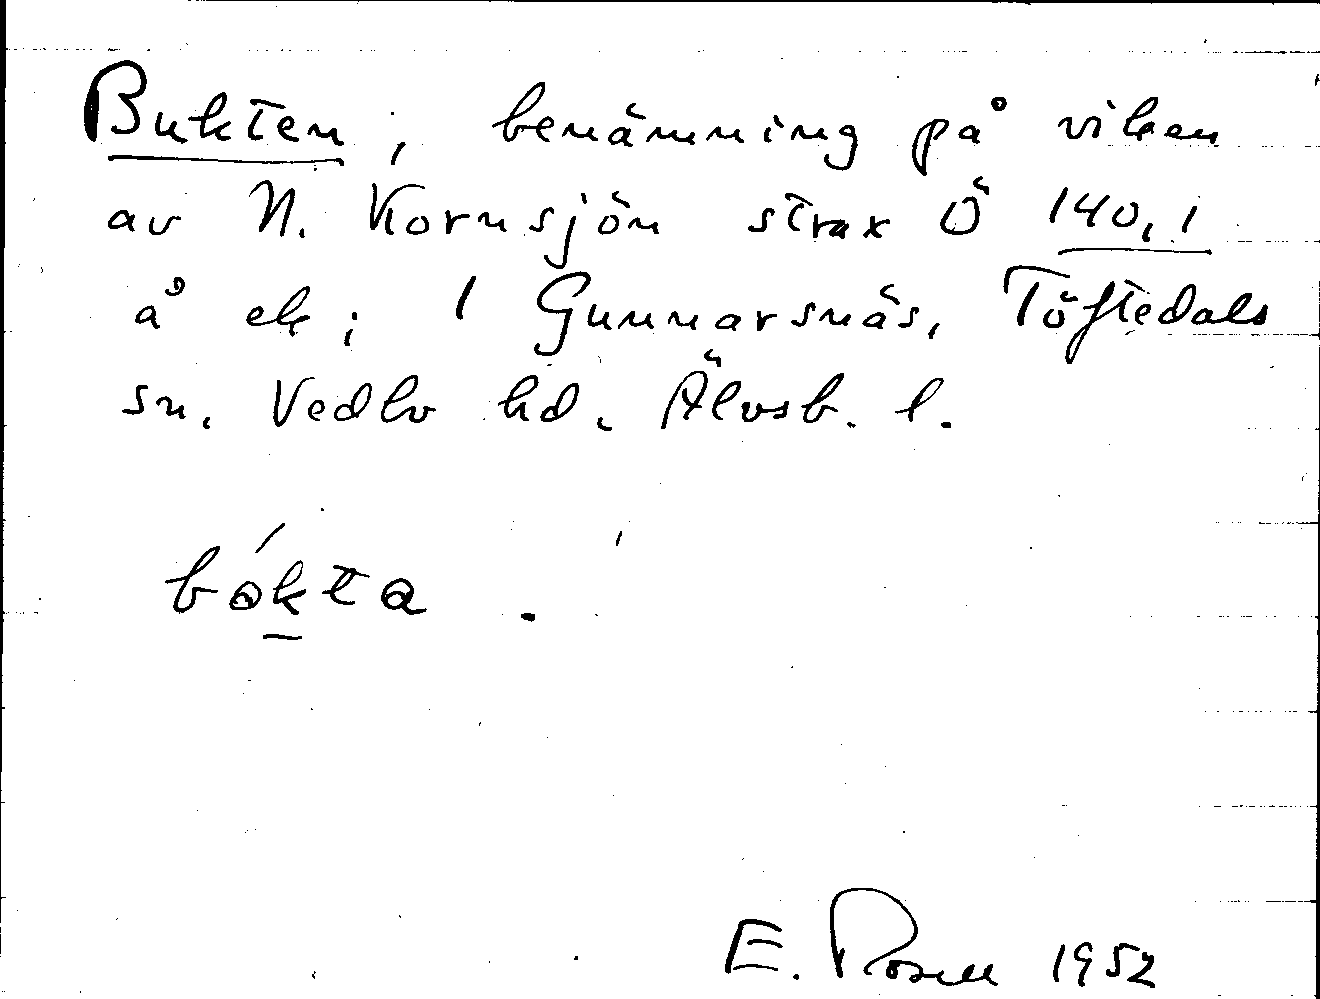 Bukten, benämning på viken
av N. Kornsjön strax Ö 140,1
å ek; 1 Gunnarsnäs, Töftedals
sn. Vedbo hd. Älvsb. l.
bókta.
E. Rosell 1952